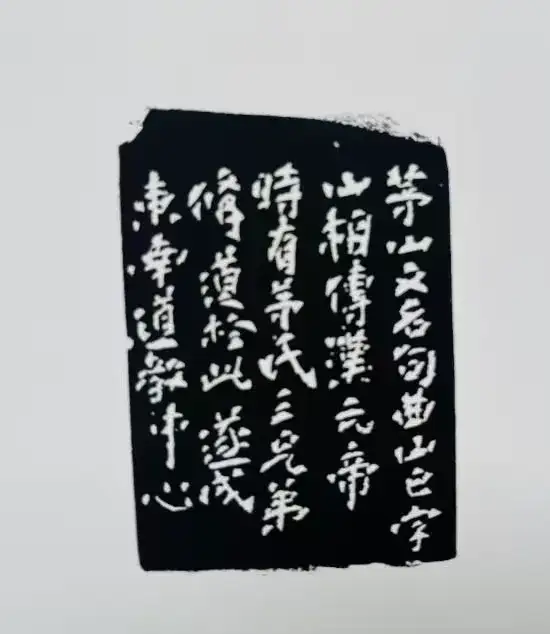 茅山又名句曲山已字
山相傳漢元帝
時有茅氏三兄弟
脩道於此遂成
東南道教中心